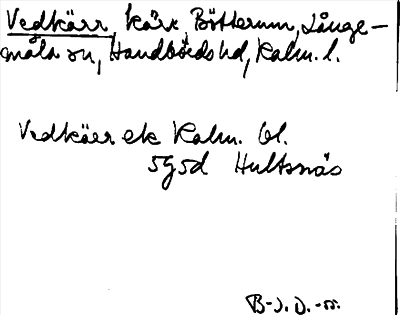 Vedkärr, kärr, Bötterum, Långe-
måla sn, Handbörds hd, Kalm. l.
Vedkärr ek Kalm. bl.
5g5d Hultsnäs